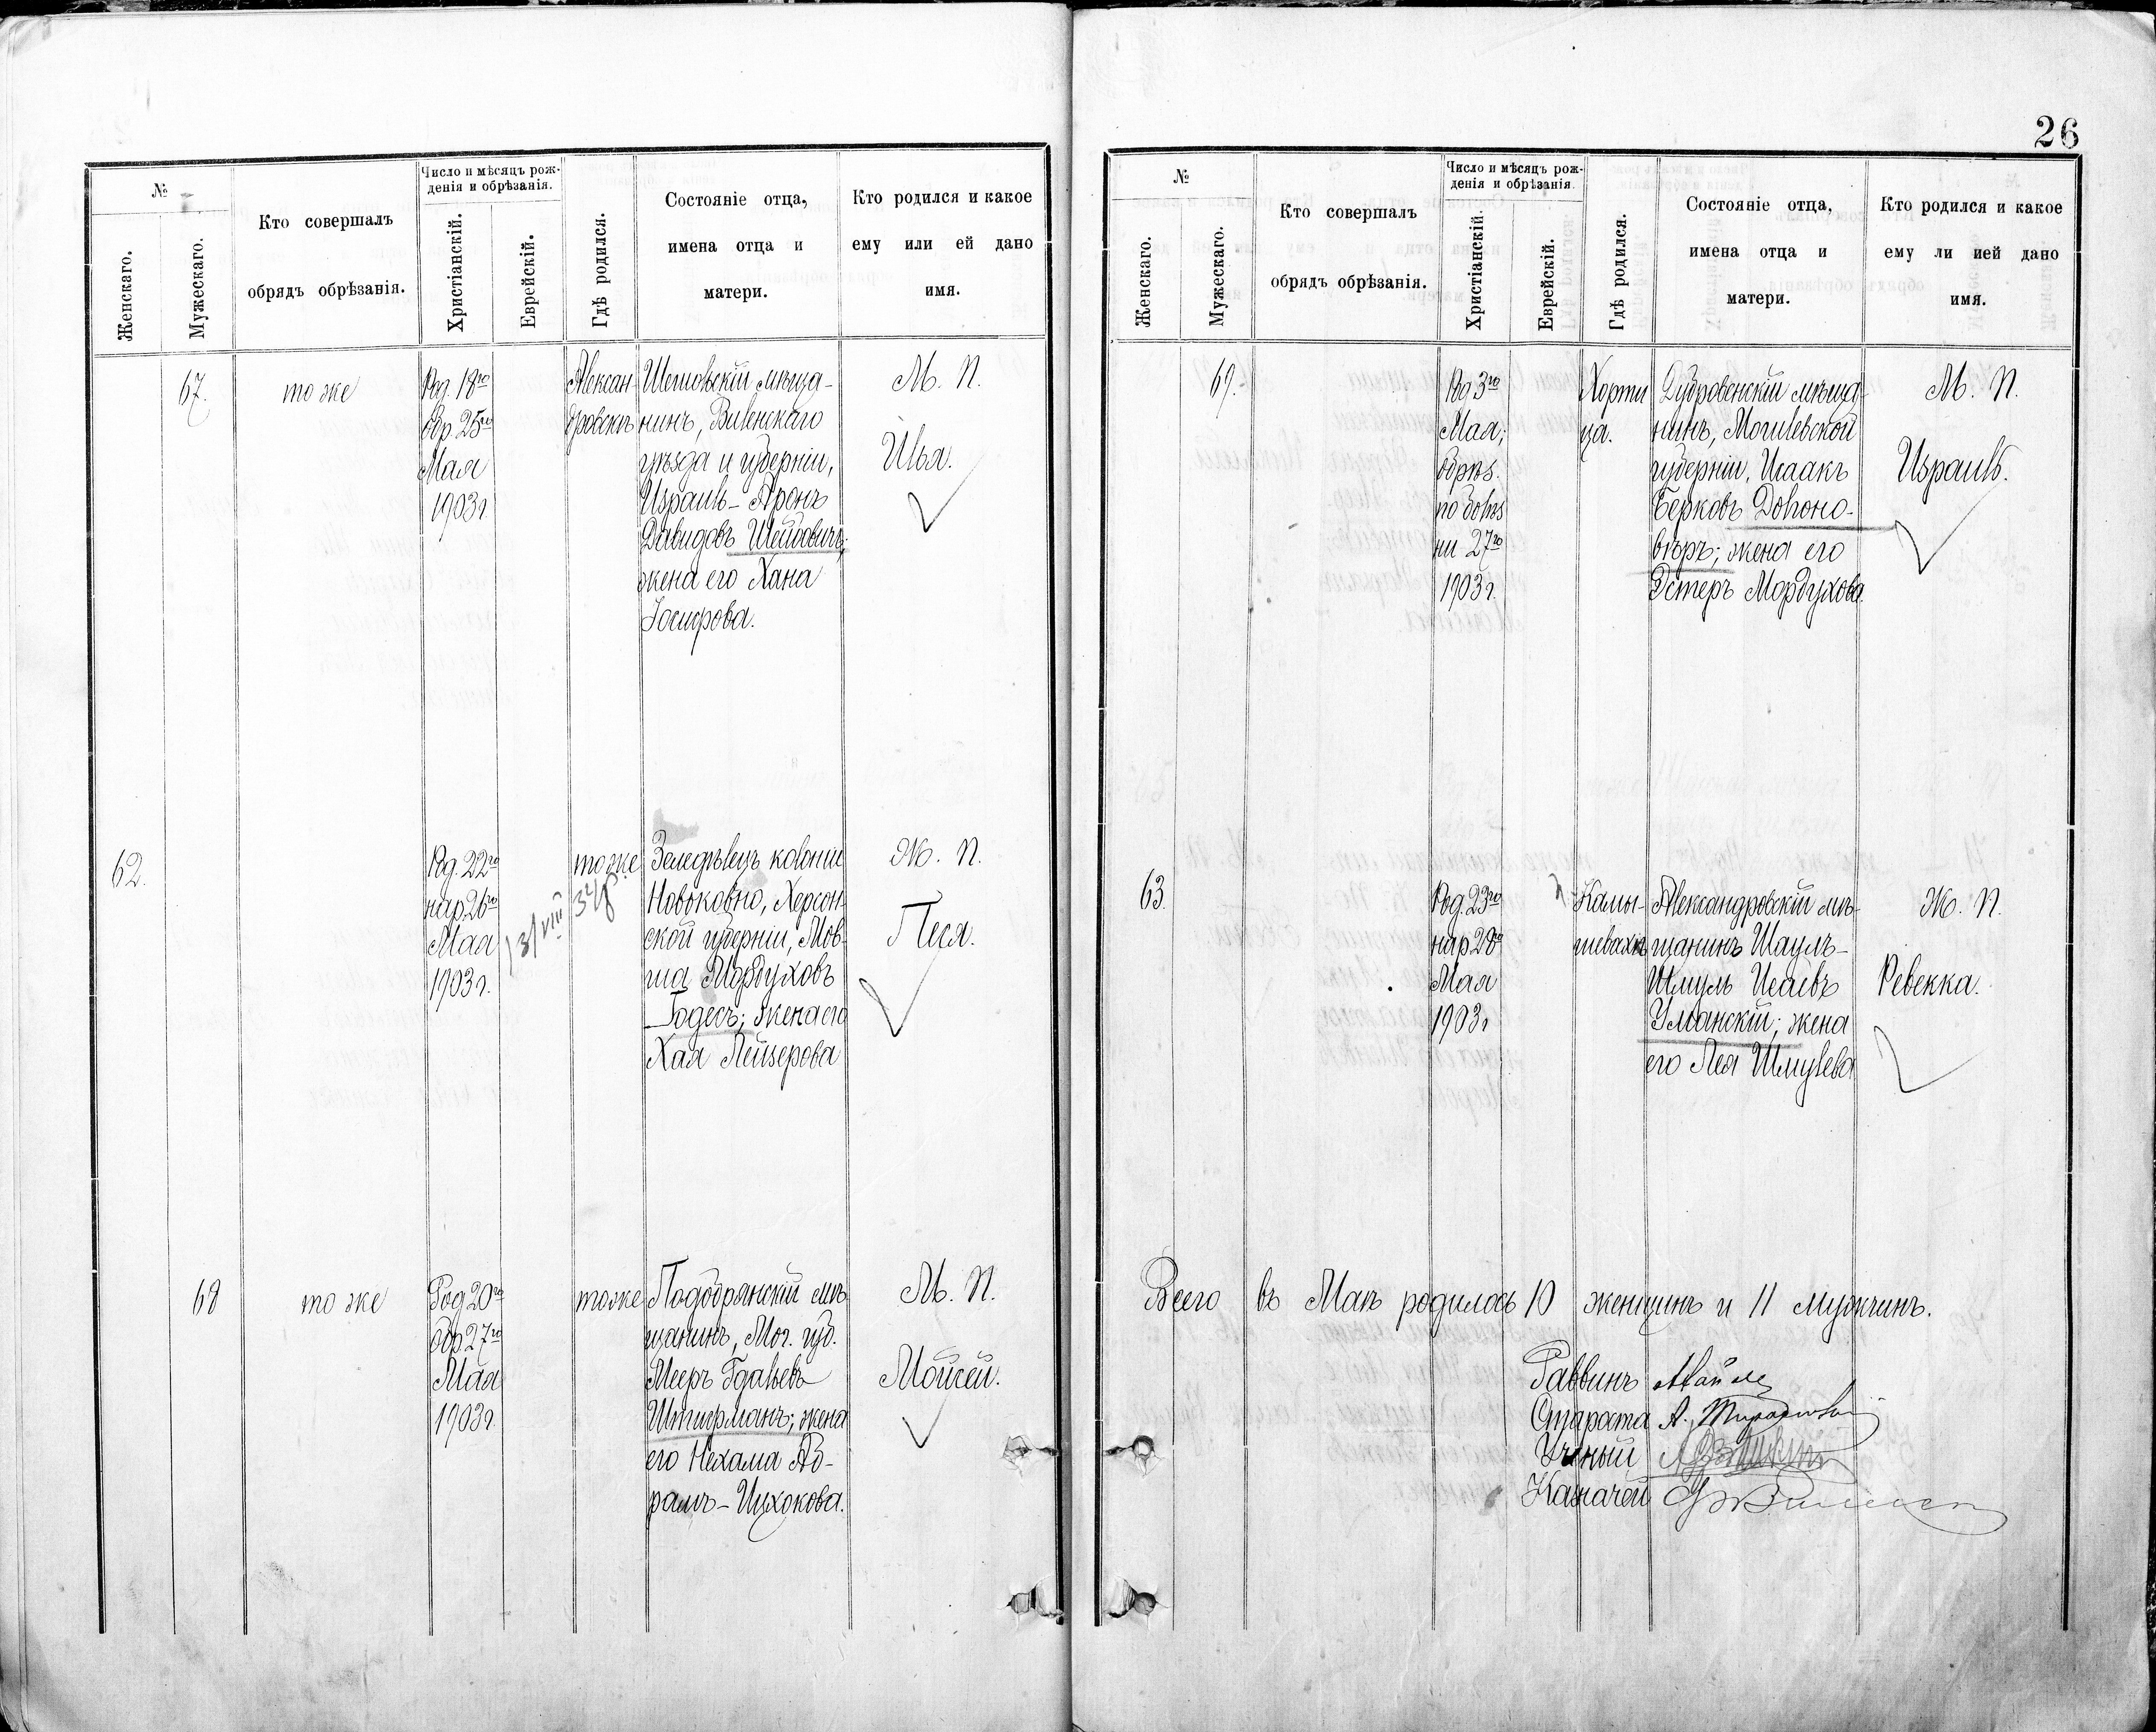 26
№
Женскаго.
Мужескаго.
Кто совершалъ
обрядъ обрѣзанія.
Число и мѣсяцъ рож-
денія и обрѣзанія.
Христіанскій.
Еврейскій.
Гдѣ родился.
Состояніе отца,
имена отца и
матери.
Кто родился и какое
ему или ей дано
имя.
67.
то же
Род. 18го
Обр. 25го
Мая
1903 г.
Алексан
дровскъ
Шешовскій мѣща-
нинъ, Виленскаго
уѣзда и губерніи,
Израиль-Аронъ
Давидовъ
жена его Хана
Іосифова.
М. П.
Илья.
62.
Род. 22го
нар. 26го
Мая
1903 г.
13/VIII 348
тоже
Земледѣлецъ колоніи
Херсон
ской губерніи, Мов-
ша Мордуховъ
Годесъ; жена его
Хая Лейзерова
Ж. П.
Песя.
68
то же
Род 20го
обр. 27го
Мая
1903 г.
тоже
Подобрянскій мѣ
щанинъ, Мог. губ.
Мееръ Гдальевъ
Штифманъ; жена
его Нехама Аб-
рамъ-Ицхокова.
М. П.
Мойсей.
№
Женскаго.
Мужескаго.
Кто совершалъ
обрядъ обрѣзанія.
Число и мѣсяцъ рож-
денія и обрѣзанія.
Христіанскій.
Еврейскій.
Гдѣ родился.
Состояніе отца,
имена отца и
матери.
Кто родился и какое
ему ли ией дано
имя.
69.
Род 3го
Мая;
обрѣз.
по болѣз
ни 27го
1903 г.
Хорти
ца.
Дубровенскій мѣща-
нинъ, Могилевской
губерніи, Исаакъ
Берковъ Доброно-
вѣръ; жена его
Эстеръ Мордухова.
М. П.
Израиль.
63.
Род. 23го
нар. 28го
Мая
1903 г
Камы-
шеваха
Александровскій мѣ-
щанинъ Шаулъ-
Шмуль Исаевъ
Уманскій; жена
его Лея Шмулева
Ж. П.
Ревекка.
Всего въ Маѣ родилось 10 женщинъ и 11 мужчинъ.
Раввинъ
Староста А.
Ученый
Казначей